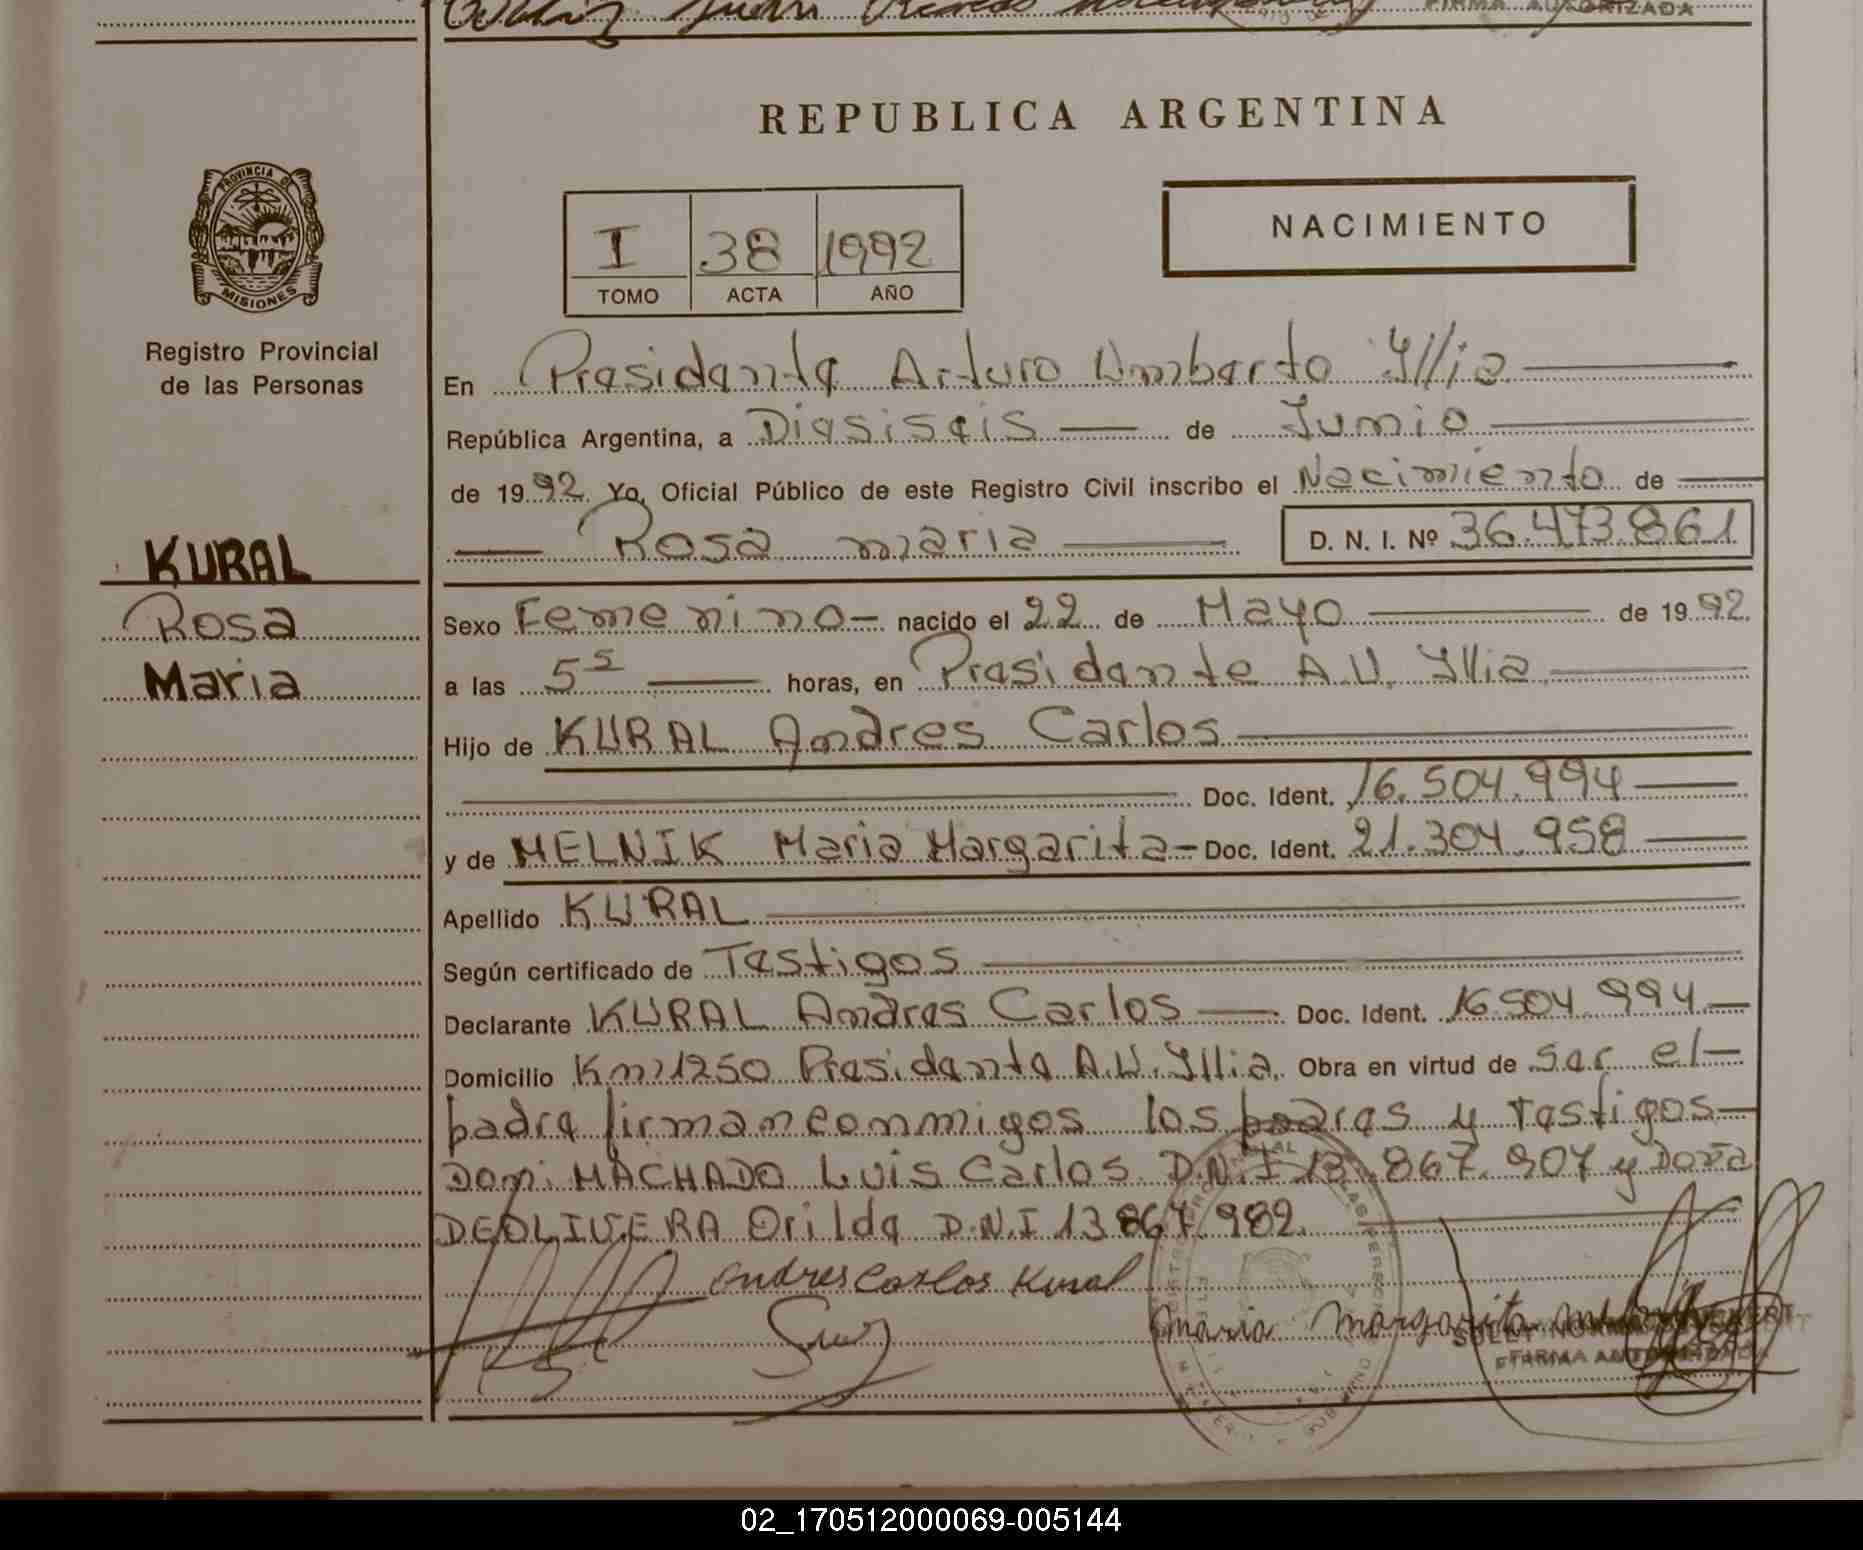 FIRMA AUTORIZADA
REPUBLICA ARGENTINA
PROVINCIA DE
MISIONES
Registro Provincial
de las Personas
I 38 1992
TOMO ACTA AÑO
NACIMIENTO
KURAL
Rosa
Maria
En Presidente Arturo Umberto Yllia
República Argentina, a Diesiseis de Junio
de 1992 Yo, Oficial Público de este Registro Civil inscribo el Nacimiento de
Rosa maria D. N. I. Nº 36.473.861
Sexo Femenino nacido el 22 de Mayo de 1992
a las 5⁵ horas, en Presidente A.U. Yllia
Hijo de KURAL Andres Carlos
Doc. Ident. 16.504.994
y de MELNIK Maria Margarita Doc. Ident. 21.304.958
Apellido KURAL
Según certificado de Testigos
Declarante KURAL Andres Carlos Doc. Ident. 16.504.994
Domicilio Km 1250 Presidente A.U. Yllia. Obra en virtud de ser el
padre firman conmigos los padres y Testigos
Don: MACHADO Luis Carlos D.N.I 13.867.907 y Doña
DEOLIVERA Orilde D.N.I 13.867.982.
Andres Carlos Kural
Maria Margarita
FIRMA AUTORIZADA
02_170512000069-005144